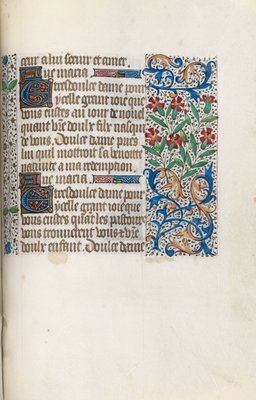 cuer a lui seruir et amer.
Aue maria.
Et tresdoulce dame pour
ycelle grant ioie que
vous eustes au iour de noel
quant vr̃e doulx filz nasqui
de vous. Doulce dame pries
lui quil mottroit sa benoite
natiuite a ma redemption.
Aue maria.
Et tresdoulce dame pour
ycelle grant ioie que
vous eustes quãt les pastours
vous trouuerent vous & vr̃e
doulx enfant. Doulce dame